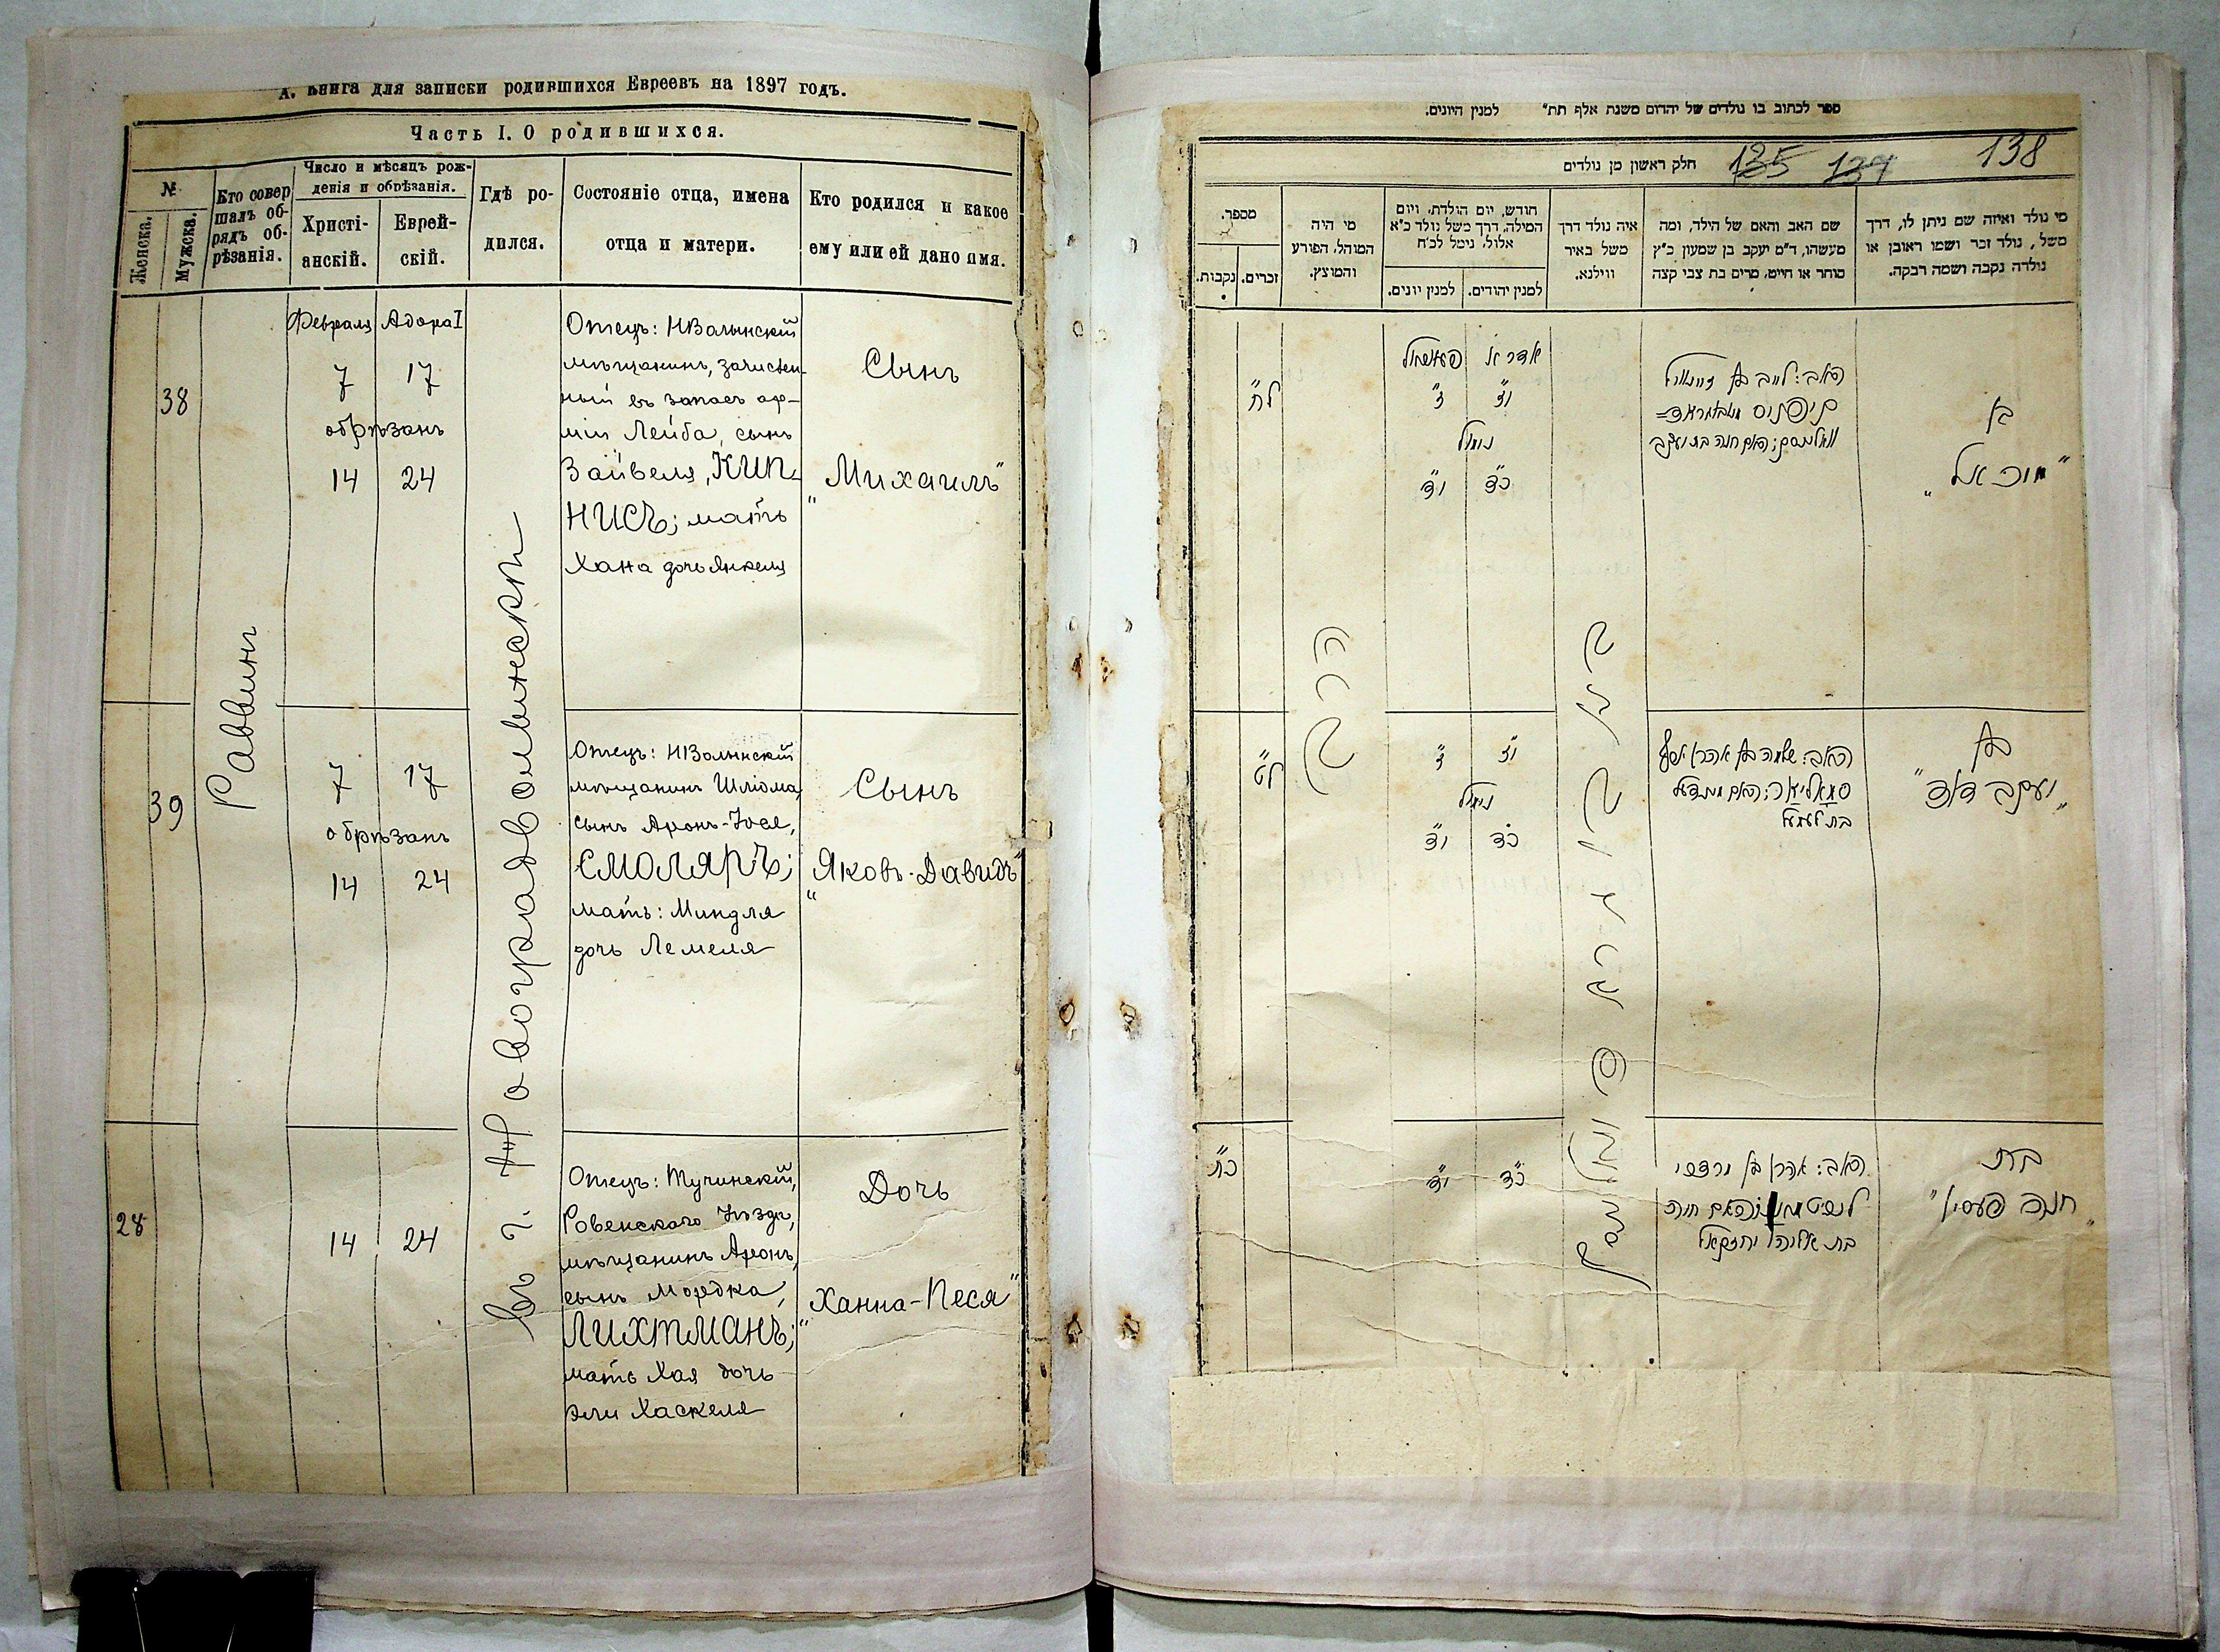 А. Книга для записки родившихся Евреевъ на 1897 годъ.
Часть I. О родившихся.
№
Женска.
Мужска.
Кто совер
шалъ об-
рядъ об-
рѣзанія.
Число и мѣсяцъ рож-
денія и обрѣзанія.
Христі-
анскій.
Еврей-
скій.
Гдѣ ро-
дился.
Состояніе отца, имена
отца и матери.
Кто родился и какое
ему или ей дано имя.
Раввинъ
въ г. Новоградволынски
38
Февраля Адора I
7 17
обрѣзанъ
14 24
Отецъ: НВолынскій
мѣщанинъ, зачислен-
ный въ запасъ ар-
міи Лейба, сынъ
Зайвеля, КИП-
НИСЪ; мать
Хана дочь Янкеля
Сынъ
"Михаилъ"
39
7 17
обрѣзанъ
14 24
Отецъ: НВолынскій
мѣщанинъ Шліома,
сынъ Аронъ-Іосл,
СМОЛЯРЪ;
мать: Миндля
дочь Лемеля
Сынъ
"Яковъ-Давидъ"
28
14 24
Отецъ: Тучинскій,
Ровенскаго Уѣзда,
мѣщанинъ Аронъ,
сынъ Мордка,
ЛИХТМАНЪ;
мать Хая дочь
Эли Хаскеля
Дочь
"Ханна-Песя"
ספר לכתוב בו נולדים של יהדום משנת אלף תת״ למנין היונים.
חלק ראשון מן נולדים
135 137 138
מספר.
זכרים.
נקבות.
מי היה
המוהל, הפורע
והמוצץ.
חודש, יום הולדת, ויום
המילה, דרך משל נולד כ״א
אלול, נימל לכ״ח
למנין יהודים.
למנין יונים.
איה נולד דרך
משל באיר
ווילנא.
שם האב והאם של הילד, ומה
מעשהו, ד״מ יעקב בן שמעון כ״ץ
סוחר או חייט, מרים בת צבי קצה
מי נולד ואיזה שם ניתן לו, דרך
משל, נולד זכר ושמו ראובן או
נולדה נקבה ושמה רבקה.
הרב
ל״ח
אדר א׳
י״ז ז״
נימול
כ״ד י״ד
האב: לייב בן
קיפניס
האם חנה בת יעקב
בן
"מיכאל"
ל״ט
י״ז ז״
נימול
כ״ד י״ד
האב: שלמה בן אהרן יוסף
סמאליאר; האם מינדל
בת לעמל
בן
"יעקב דוד"
כ״ח
כ״ד י״ד
האב: אהרן בן מרדכי
ליכטמאן; האם חיה
בת אליהו יחזקאל
בת
"חנה פעסיא"